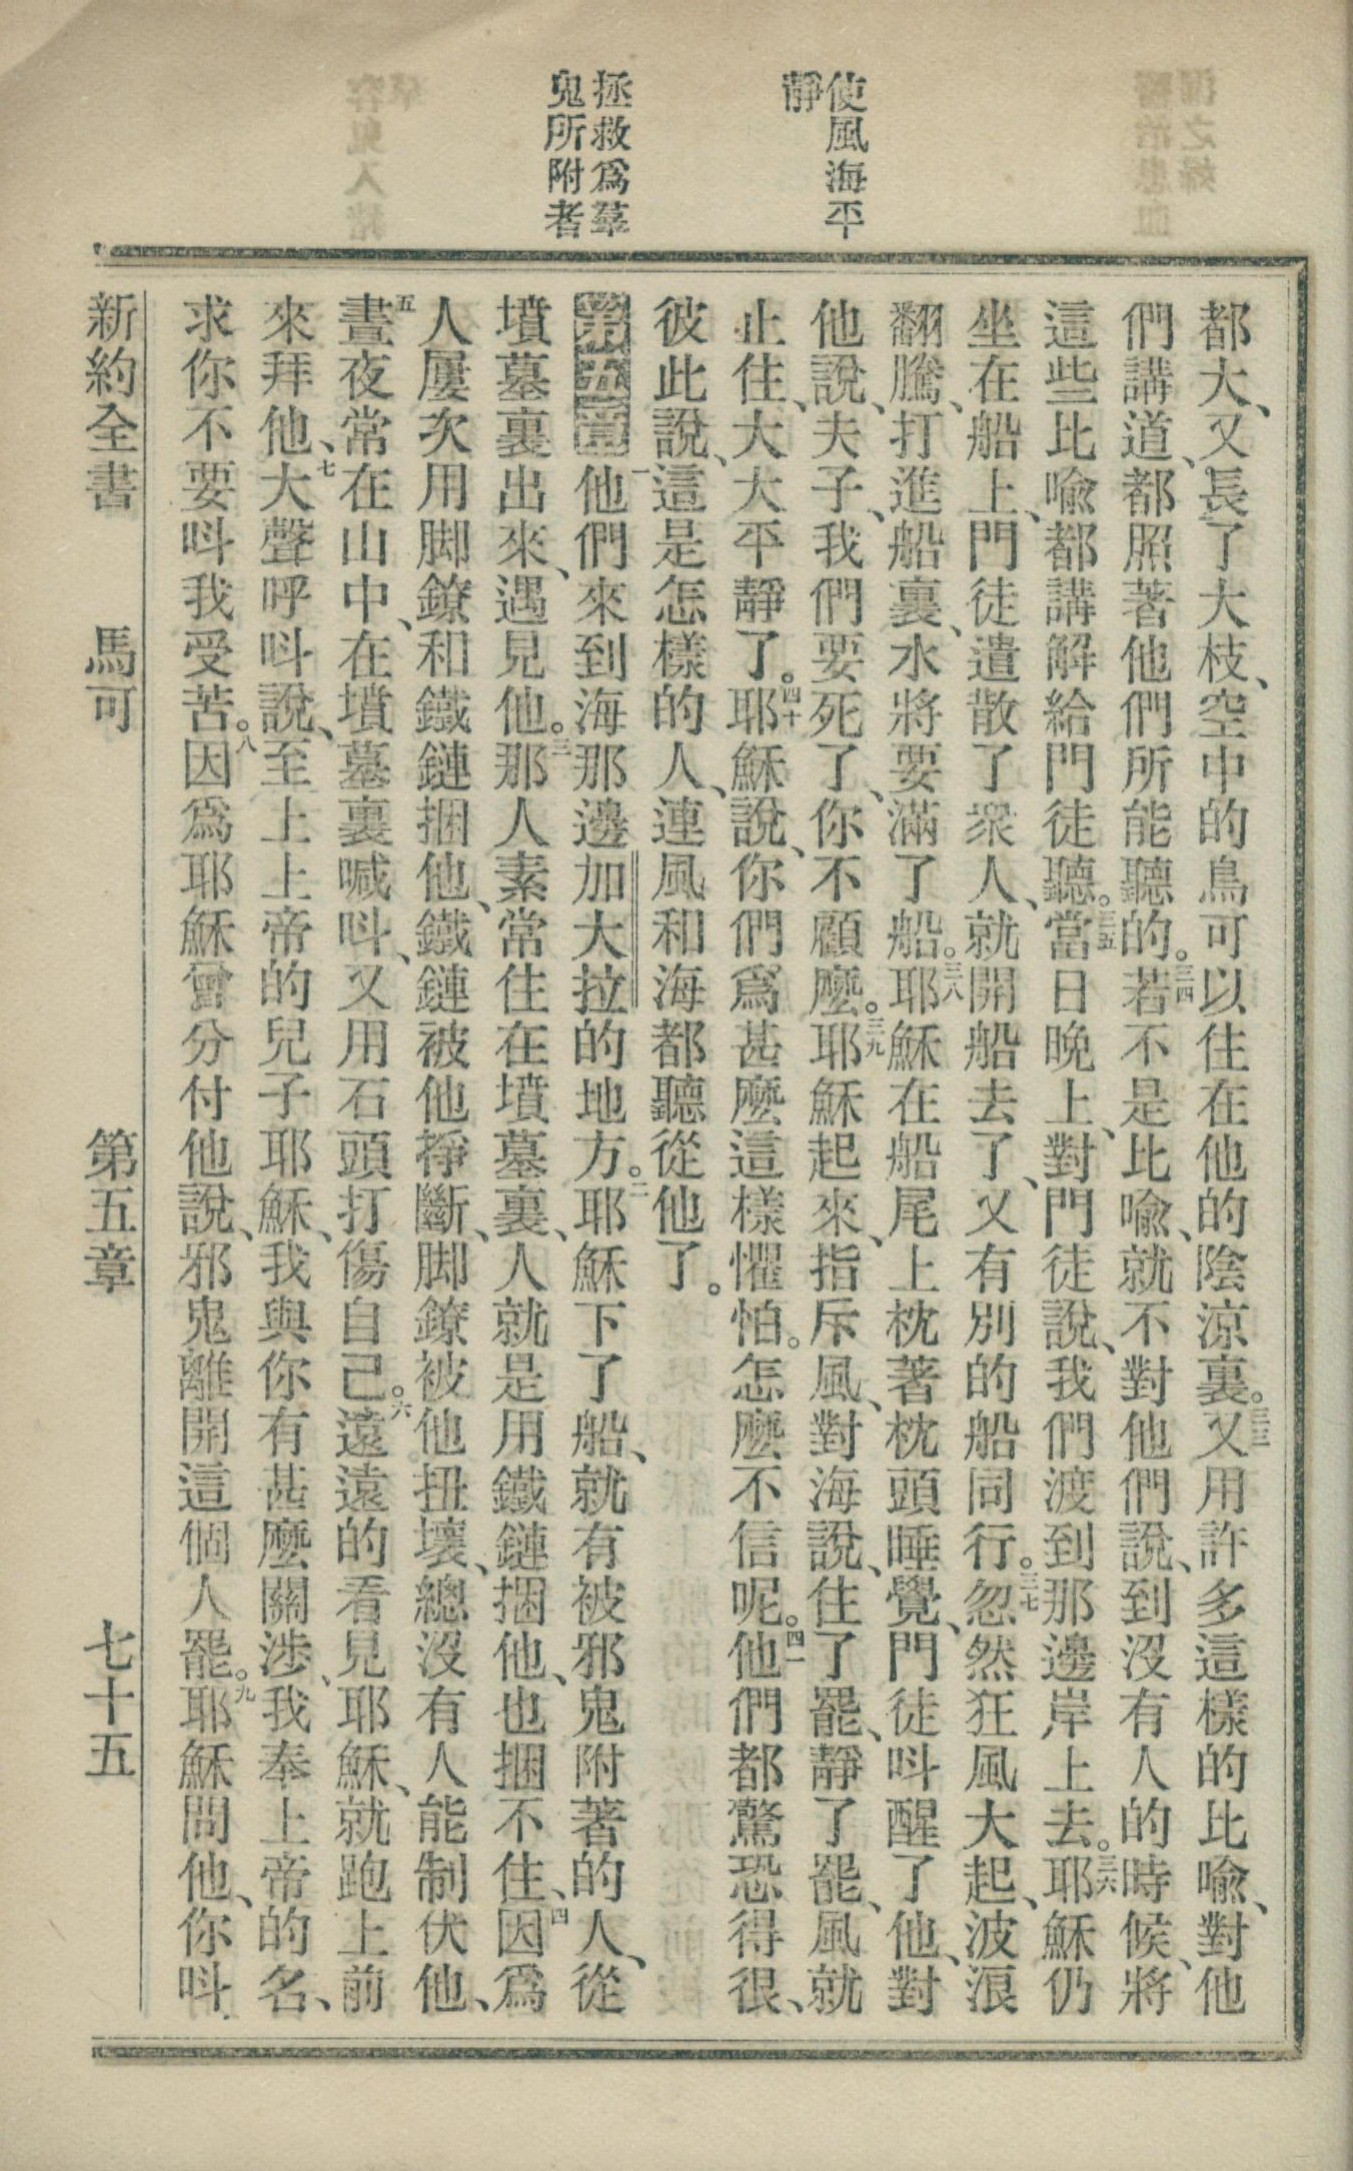 使風海平
靜
拯救爲羣
鬼所附者
都大、又長了大枝、空中的鳥可以住在他的陰涼裏。三三又用許多這樣的比喩、對他
們講道、都照著他們所能聽的。三四若不是比喩、就不對他們說、到沒有人的時候、將
這些比喩都講解給門徒聽。三五當日晚上、對門徒說、我們渡到那邊岸上去。三六耶穌仍
坐在船上、門徒遣散了衆人、就開船去了、又有別的船同行。三七忽然狂風大起、波浪
翻騰、打進船裏、水將要滿了船。三八耶穌在船尾上枕著枕頭睡覺、門徒呌醒了他、對
他說、夫子、我們要死了、你不顧麽。三九耶穌起來、指斥風、對海說、住了罷、靜了罷、風就
止住、大大平靜了。四十耶穌說、你們爲甚麽這樣懼怕。怎麽不信呢。四一他們都驚恐得很、
彼此說、這是怎樣的人、連風和海都聽從他了。
第五章一他們來到海那邊加大拉的地方。二耶穌下了船、就有被邪鬼附著的人、從
墳墓裏出來、遇見他。三那人素常住在墳墓裏、人就是用鐵鏈捆他、也捆不住、四因爲
人屢次用脚鐐和鐵鏈捆他、鐵鏈被他掙斷、脚鐐被他扭壞、總沒有人能制伏他、
五晝夜常在山中、在墳墓裏喊呌、又用石頭打傷自己。六遠遠的看見耶穌、就跑上前
來拜他、七大聲呼呌說、至上上帝的兒子耶穌、我與你有甚麽關涉、我奉上帝的名、
求你不要呌我受苦。八因爲耶穌曾分付他說、邪鬼離開這個人罷。九耶穌問他、你呌
新約全書 馬可 第五章 七十五